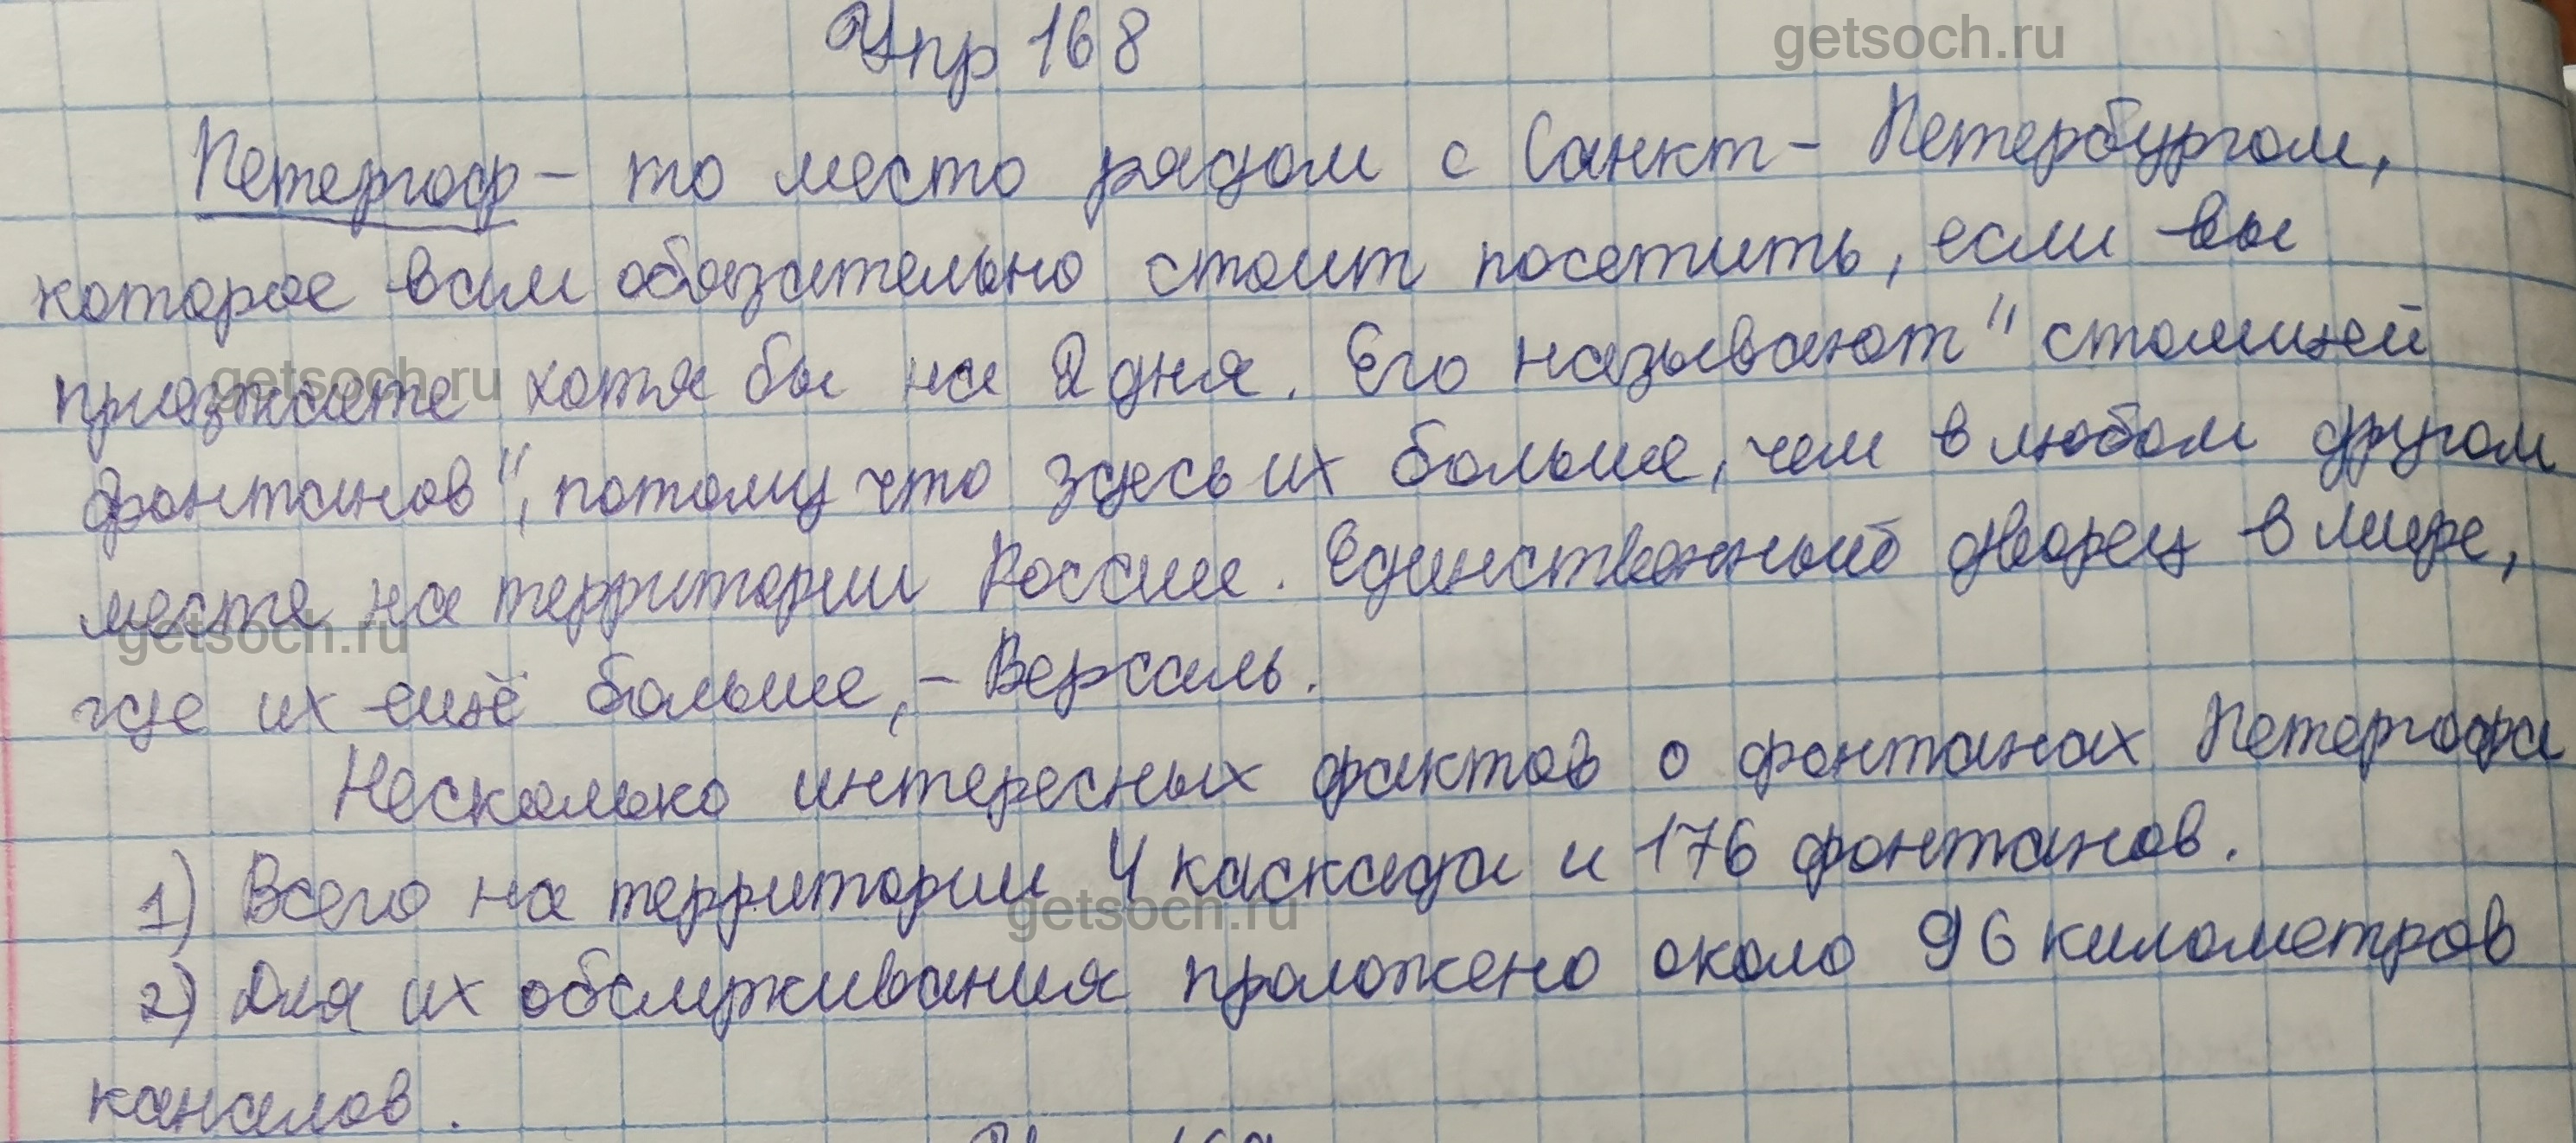 Упр 168
getsoch.ru
Петергоф – то место рядом с Санкт-Петербургом,
которое вам обязательно стоит посетить, если вы
приезжаете хотя бы на 2 дня. Его называют "столицей
getsoch.ru
фонтанов", потому что здесь их больше, чем в любом другом
месте на территории России. Единственный дворец в мире,
getsoch.ru
где их ещё больше, – Версаль.
Несколько интересных фактов о фонтанах Петергофа
1) Всего на территории 4 каскада и 176 фонтанов.
getsoch.ru
2) Для их обслуживания проложено около 96 километров
каналов.